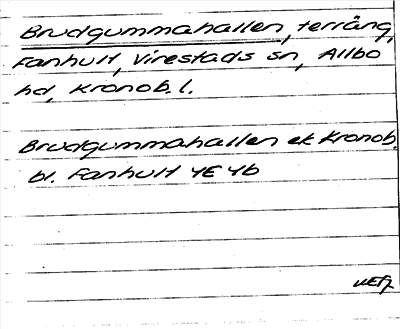 Brudgummahallen, terräng,
Fanhult, Virestads sn, Allbo
hd, Kronob. l.
Brudgummahallen ek Kronob.
bl. Fanhult 4E 4b